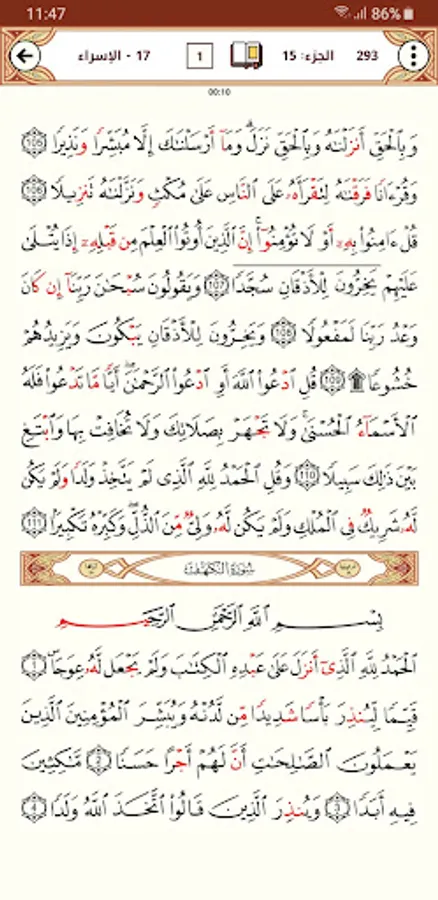 11:47 86%
293 الجزء: 15 1 17 - الإسراء
00:10
وَبِٱلْحَقِّ أَنزَلْنَٰهُ وَبِٱلْحَقِّ نَزَلَ ۗ وَمَآ أَرْسَلْنَٰكَ إِلَّا مُبَشِّرًا وَنَذِيرًا ١٠٥
وَقُرْءَانًا فَرَقْنَٰهُ لِتَقْرَأَهُۥ عَلَى ٱلنَّاسِ عَلَىٰ مُكْثٍ وَنَزَّلْنَٰهُ تَنزِيلًا ١٠٦
قُلْ ءَامِنُوا۟ بِهِۦٓ أَوْ لَا تُؤْمِنُوٓا۟ ۚ إِنَّ ٱلَّذِينَ أُوتُوا۟ ٱلْعِلْمَ مِن قَبْلِهِۦٓ إِذَا يُتْلَىٰ
عَلَيْهِمْ يَخِرُّونَ لِلْأَذْقَانِ سُجَّدًا ١٠٧ وَيَقُولُونَ سُبْحَٰنَ رَبِّنَآ إِن كَانَ
وَعْدُ رَبِّنَا لَمَفْعُولًا ١٠٨ وَيَخِرُّونَ لِلْأَذْقَانِ يَبْكُونَ وَيَزِيدُهُمْ
خُشُوعًا ۩ ١٠٩ قُلِ ٱدْعُوا۟ ٱللَّهَ أَوِ ٱدْعُوا۟ ٱلرَّحْمَٰنَ ۖ أَيًّا مَّا تَدْعُوا۟ فَلَهُ
ٱلْأَسْمَآءُ ٱلْحُسْنَىٰ ۚ وَلَا تَجْهَرْ بِصَلَاتِكَ وَلَا تُخَافِتْ بِهَا وَٱبْتَغِ
بَيْنَ ذَٰلِكَ سَبِيلًا ١١٠ وَقُلِ ٱلْحَمْدُ لِلَّهِ ٱلَّذِى لَمْ يَتَّخِذْ وَلَدًا وَلَمْ يَكُن
لَّهُۥ شَرِيكٌ فِى ٱلْمُلْكِ وَلَمْ يَكُن لَّهُۥ وَلِىٌّ مِّنَ ٱلذُّلِّ ۖ وَكَبِّرْهُ تَكْبِيرًا ١١١
سُورَةُ الكَهْفِ
بِسْمِ ٱللَّهِ ٱلرَّحْمَٰنِ ٱلرَّحِيمِ
ٱلْحَمْدُ لِلَّهِ ٱلَّذِىٓ أَنزَلَ عَلَىٰ عَبْدِهِ ٱلْكِتَٰبَ وَلَمْ يَجْعَل لَّهُۥ عِوَجَا ۜ ١
قَيِّمًا لِّيُنذِرَ بَأْسًا شَدِيدًا مِّن لَّدُنْهُ وَيُبَشِّرَ ٱلْمُؤْمِنِينَ ٱلَّذِينَ
يَعْمَلُونَ ٱلصَّٰلِحَٰتِ أَنَّ لَهُمْ أَجْرًا حَسَنًا ٢ مَّٰكِثِينَ
فِيهِ أَبَدًا ٣ وَيُنذِرَ ٱلَّذِينَ قَالُوا۟ ٱتَّخَذَ ٱللَّهُ وَلَدًا ٤